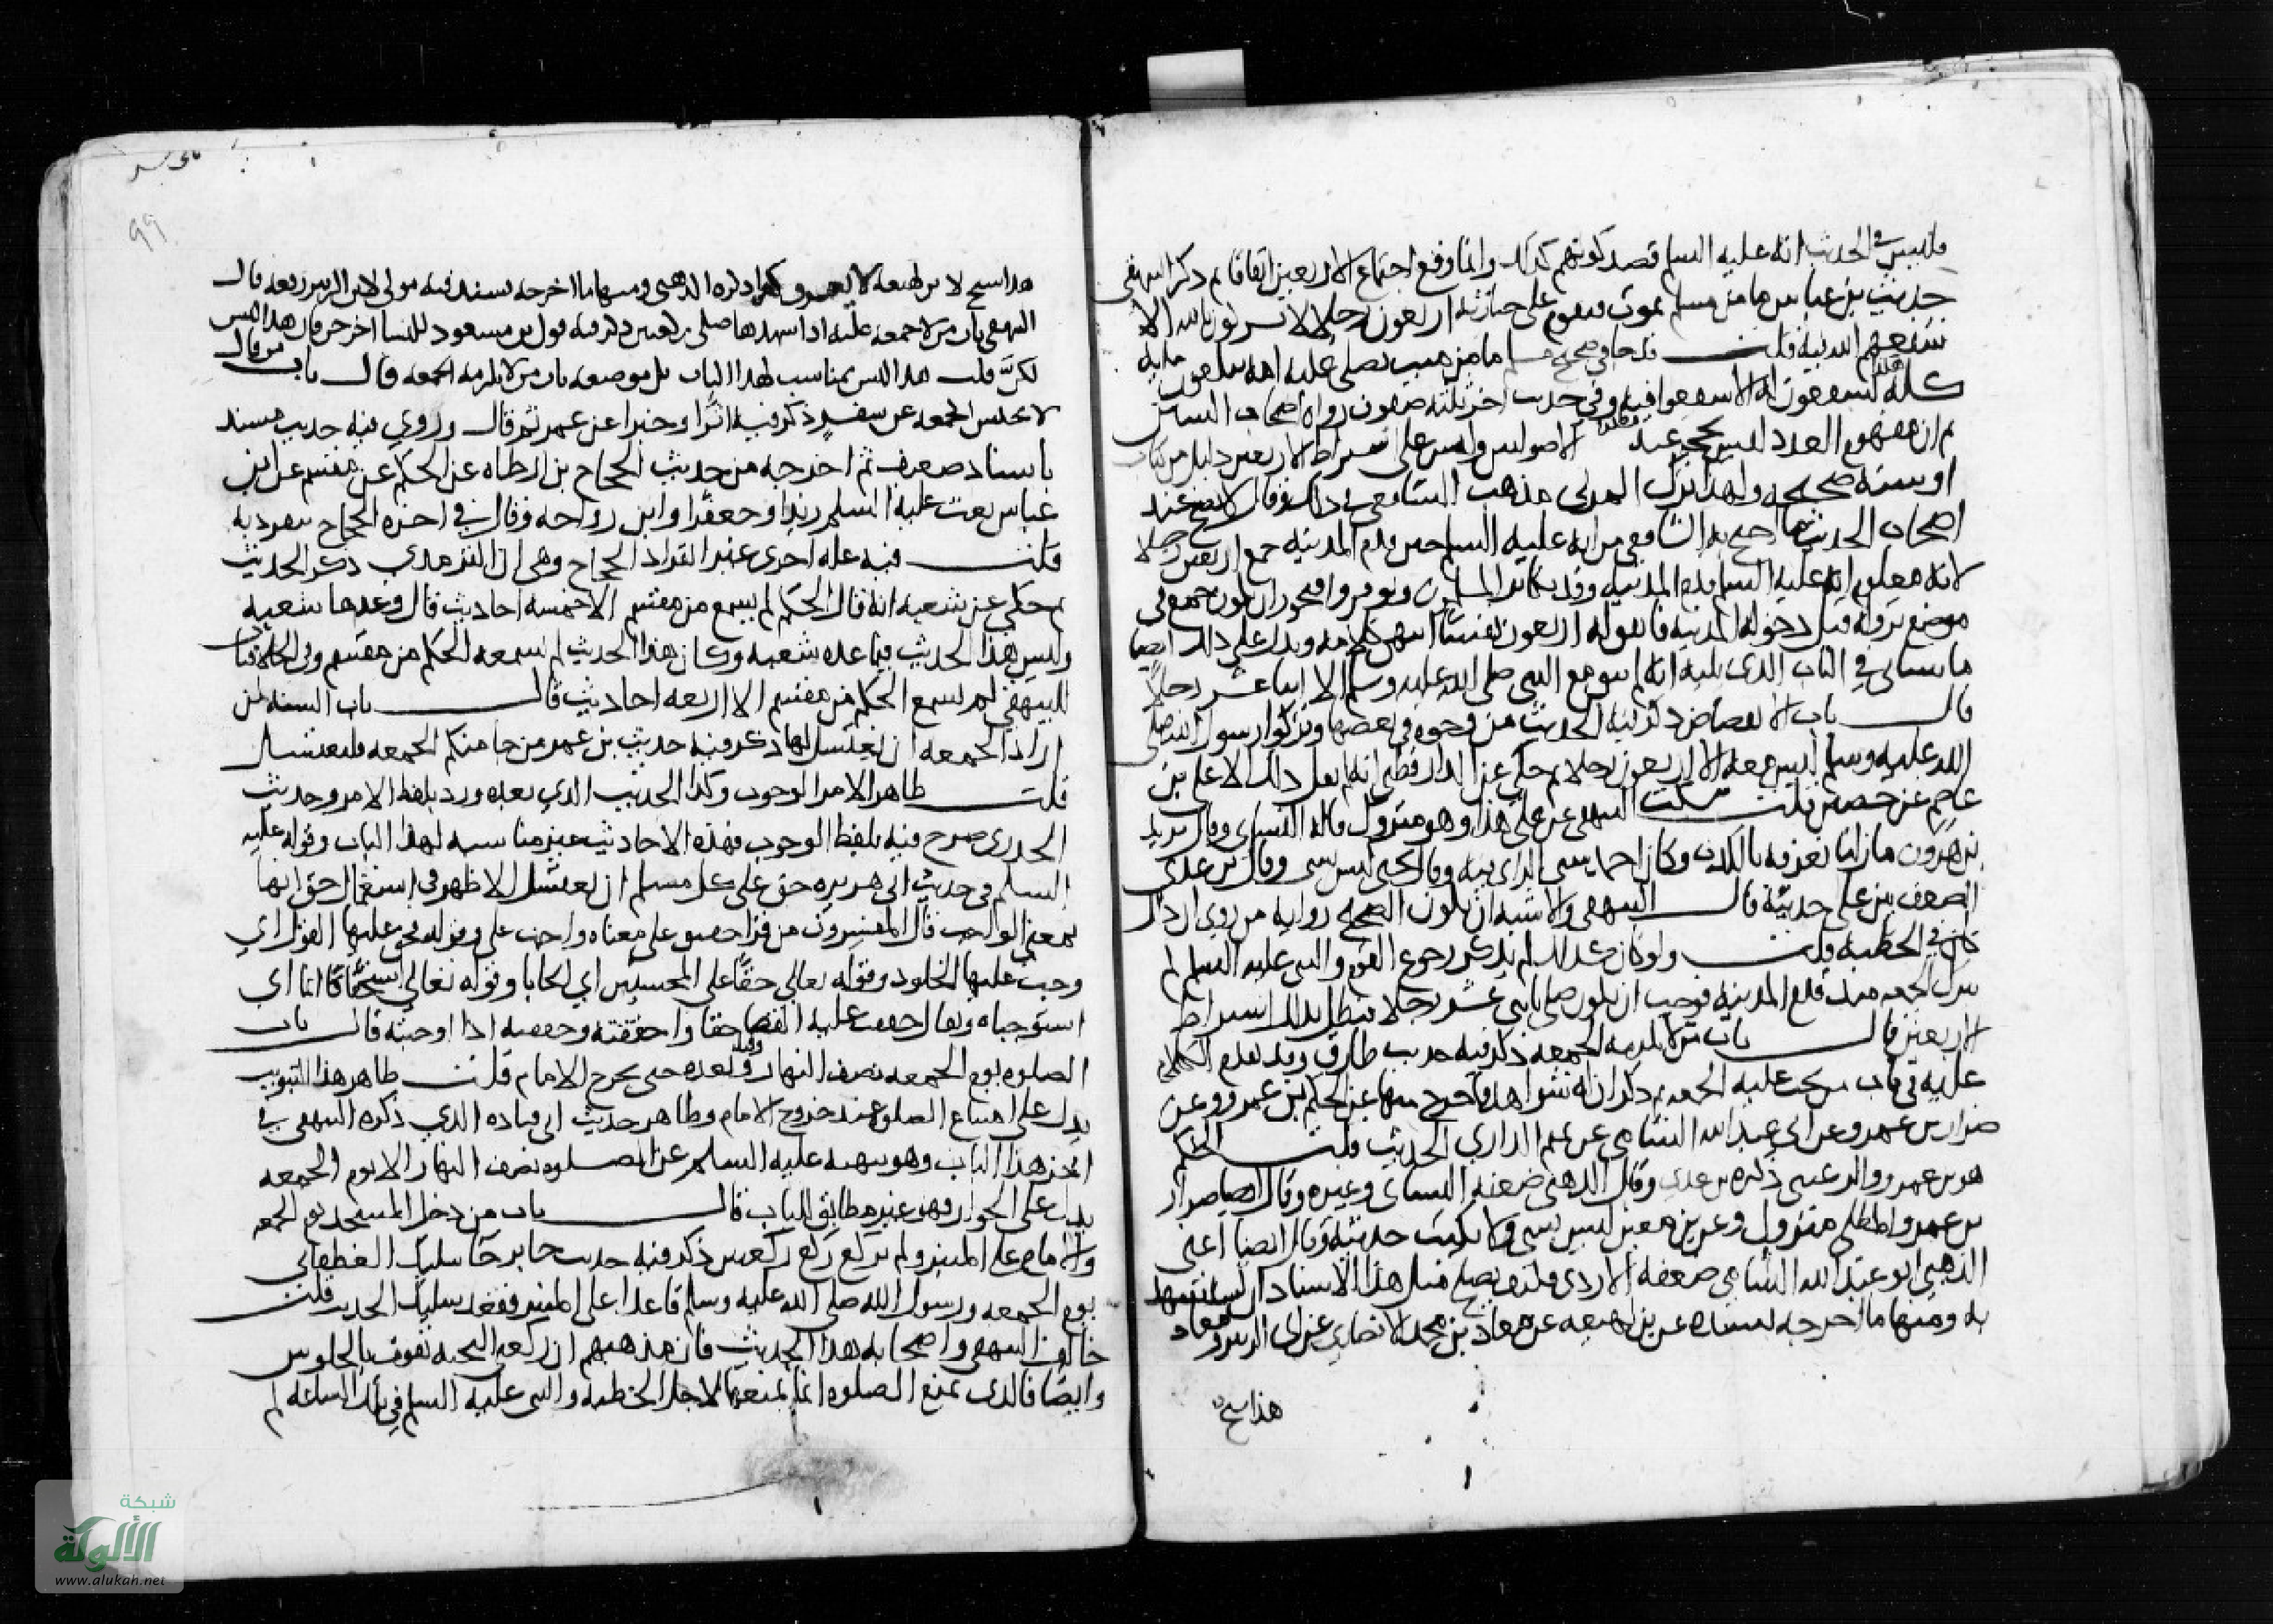 فليس في الحديث انه عليه السلم قصد كونهم كذلك وانما وقع اجتماع الاربعين اتفاقا ثم ذكر البيهقى
حديث بن عباس ما من مسلم يموت فيقوم على جنازته اربعون رجلا لا يشركون بالله الا
شفعهم الله فيه قلت قد جا في صحيح مسلم ما من ميت يصلى عليه امه يبلغون مايه
كلهم يشفعون له الا شفعوا فيه وفي حديث اخر ثلثه صفوف رواه اصحاب السنن
ثم ان مفهوم العدد ليس بحجه عند الاصوليين وليس على اشتراط الاربعين دليل من كتاب
او سنه صحيحه ولهذا ترك المزنى مذهب الشافعى في ذلك وقال لا يصح عند
اصحاب الحديث ما احتج به الشافعى من انه عليه السلم حين قدم المدينه جمع اربعين رجلا
لانه معلوم انه عليه السلم قدم المدينه وقد تكاثر المسلمون وتوفروا فيجوز ان يكون جمع في
موضع نزوله قبل دخوله المدينه فاتفق له اربعون نفسا انتهى كلامه ويدل على ذلك ايضا
ما سياتى في الباب الذى يليه انه لم يبق مع النبي صلى الله عليه وسلم الا اثنا عشر رجلا
قال باب الانفضاض ذكر فيه الحديث من وجوه في بعضها وتركوا رسول الله صلى
الله عليه وسلم ليس معه الا اربعون رجلا ثم حكى عن الدارقطنى انه لم يقل ذلك الا على بن
عاصم عن حصين قلت سكت البيهقى عن على هذا وهو متروك قاله النسائى وقال يزيد
بن هرون ما زلنا نعرفه بالكذب وكان احمد سيى الراى فيه وقال يحيى ليس بشى وقال بن عدى
الضعف بين على حديثه قال البيهقى والاشبه ان يكون الصحيح روايه من روى ان ذلك
كان في الخطبه قلت ولو كان كذلك لم يذكر رجوع القوم والنبي عليه السلم لم
يترك الجمعه منذ قدم المدينه فوجب ان يكون صلى باثنى عشر رجلا فبطل بذلك اشتراط
الاربعين قال باب من لا تلزمه الجمعه ذكر فيه حديث طارق وقد تقدم الكلام
عليه في باب من تجب عليه الجمعه ثم ذكر ان له شواهد فاخرج منها عن الحكم بن عمرو عن
ضرار بن عمرو عن ابي عبد الله الشامى عن تميم الدارى الحديث قلت الحكم
هو بن عمرو الرعينى ذكره بن عدى وقال الذهبى ضعفه النسائى وغيره وقال ايضا ضرار
بن عمرو الملطى متروك وعن بن معين ليس بشى ولا يكتب حديثه وقال ايضا اعنى
الذهبى ابو عبد الله الشامى ضعفه الازدى فكيف يصلح مثل هذا الاسناد ان يستشهد
به ومنها ما اخرجه بسنده عن بن لهيعه عن معاذ بن محمد الانصارى عن ابى الزبير
هذا سيج
99
البيهقى باب من لا جمعه عليه اذا شهدها صلى ركعتين ذكر فيه قول بن مسعود للنسا اخرجن فان هذا ليس
لكنّ قلت هذا ليس بمناسب لهذا الباب بل موضعه باب من لا تلزمه الجمعه قال باب من قال
لا تحبس الجمعه عن سفر ذكر فيه اثرا وخبرا عن عمر ثم قال وروي فيه حديث مسند
باسناد ضعيف ثم اخرجه من حديث الحجاج بن ارطاه عن الحكم عن مقسم عن ابن
عباس بعث عليه السلم زيدا وجعفرا وابن رواحه وقال في اخره الحجاج ينفرد به
قلت فيه عله اخرى غير انفراد الحجاج وهى ان الترمذي ذكر الحديث
ثم حكى عن شعبه انه قال الحكم لم يسمع من مقسم الا خمسه احاديث قال وعدها شعبه
وليس هذا الحديث فيما عده شعبه وكان هذا الحديث لم يسمعه الحكم من مقسم وفى الخلافيات
للبيهقى لم يسمع الحكم من مقسم الا اربعه احاديث قال باب السنه لمن
اراد الجمعه ان يغتسل لها ذكر فيه حديث بن عمر من جا منكم الجمعه فليغتسل
قلت ظاهر الامر الوجوب وكذا الحديث الذى بعده ورد بلفظ الامر وحديث
الخدرى صرح فيه بلفظ الوجوب فهذه الاحاديث غير مناسبه لهذا الباب وقوله عليه
السلم في حديث ابى هريره حق على كل مسلم ان يغتسل الاظهر في استعمال حق انها
بمعنى الواجب قال المفسرون من قرا حقيق على معناه واجب على وقوله فحق عليها القول اى
وجب عليها الخلود وقوله تعالى حقا على المحسنين اى ايجابا وقوله تعالى استحقا اثما اى
استوجباه ويقال حققت عليه القضا حقا واحققته وحققته اذا اوجبته قال باب
الصلوه يوم الجمعه نصف النهار وقبله وبعده حتى يخرج الامام قلت ظاهر هذا التبويب
يدل على امتناع الصلوه عند خروج الامام وظاهر حديث ابى قتاده الذى ذكره البيهقى في
اخر هذا الباب وهو نهيه عليه السلم عن الصلوه نصف النهار الا يوم الجمعه
يدل على الجواز فهو غير مطابق للباب قال باب من دخل المسجد يوم الجمعه
والامام على المنبر ولم يركع ركع ركعتين ذكر فيه حديث جابر جا سليك الغطفانى
يوم الجمعه ورسول الله صلى الله عليه وسلم قاعدا على المنبر فقعد سليك الحديث قلت
خالف البيهقى واصحابه هذا الحديث فان مذهبهم ان ركعتى التحيه تفوت بالجلوس
وايضا فالذى يمنع الصلوه انما يمنعها لاجل الخطبه والنبى عليه السلم في تلك الساعه لم
شبكة
الألوكة
www.alukah.net